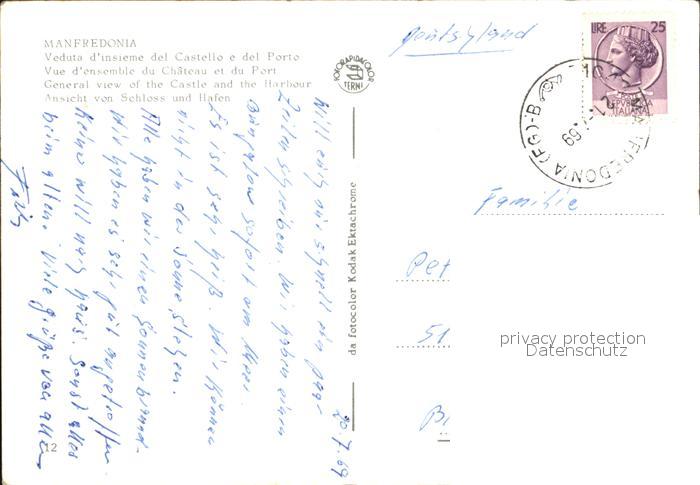 MANFREDONIA
Veduta d'insieme del Castello e del Porto
Vue d'ensemble du Château et du Port
General view of the Castle and the Harbour
Ansicht von Schloss und Hafen
FOTORAPIDACOLOR
TERNI
LIRE 25
REPVBBLICA
ITALIANA
MANFREDONIA (FG)-B
da fotocolor Kodak Ektachrome
20.7.69
Will euch nur schnell ein paar
Zeilen schreiben. Wir haben einen
Bungalow sofort am Meer.
Es ist sehr heiß. Wir können
nicht in der Sonne liegen.
Alle haben wir einen Sonnenbrand.
Wir haben es sehr gut angetroffen.
Keine will nach Haus. Sonst alles
beim alten. Viele Grüße von allen
Familie
Pet
51
B
privacy protection
Datenschutz
12